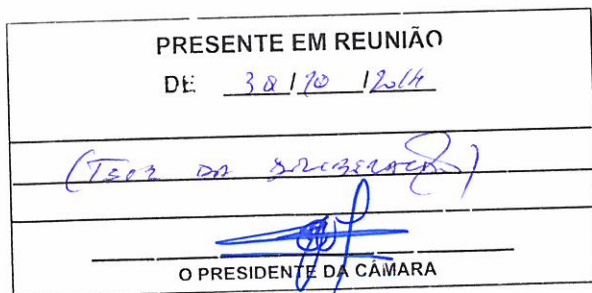 PRESENTE EM REUNIÃO
DE 30/10/2014
(TEOR DA DELIBERAÇÃO)
O PRESIDENTE DA CÂMARA